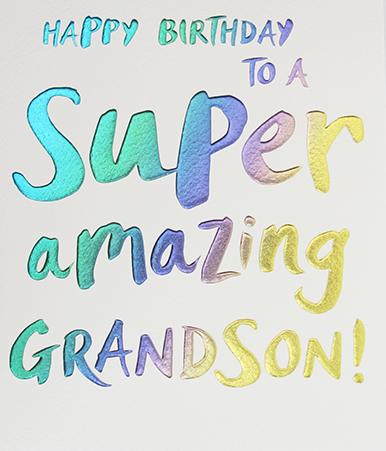 HAPPY BIRTHDAY
TO A
Super
amazing
GRANDSON!